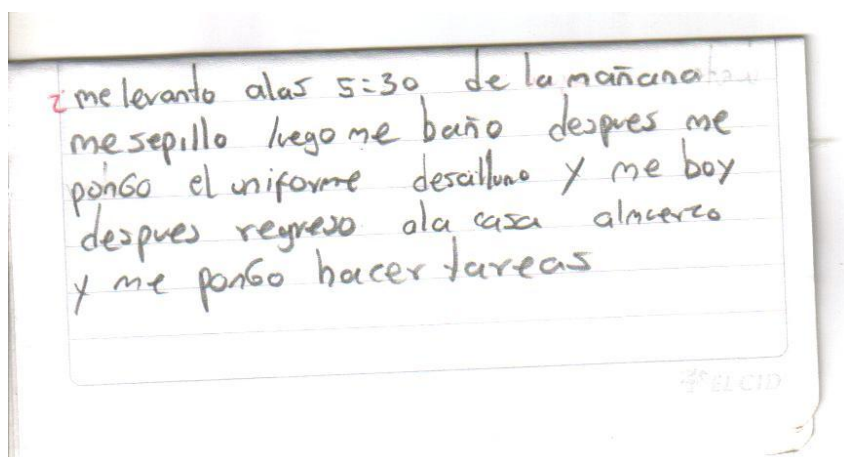 ¿me levanto alas 5:30 de la mañana
me sepillo luego me baño despues me
ponGo el uniforme desailluno y me boy
despues regreso ala casa almcerzo
y me ponGo hacer tareas
EL CID